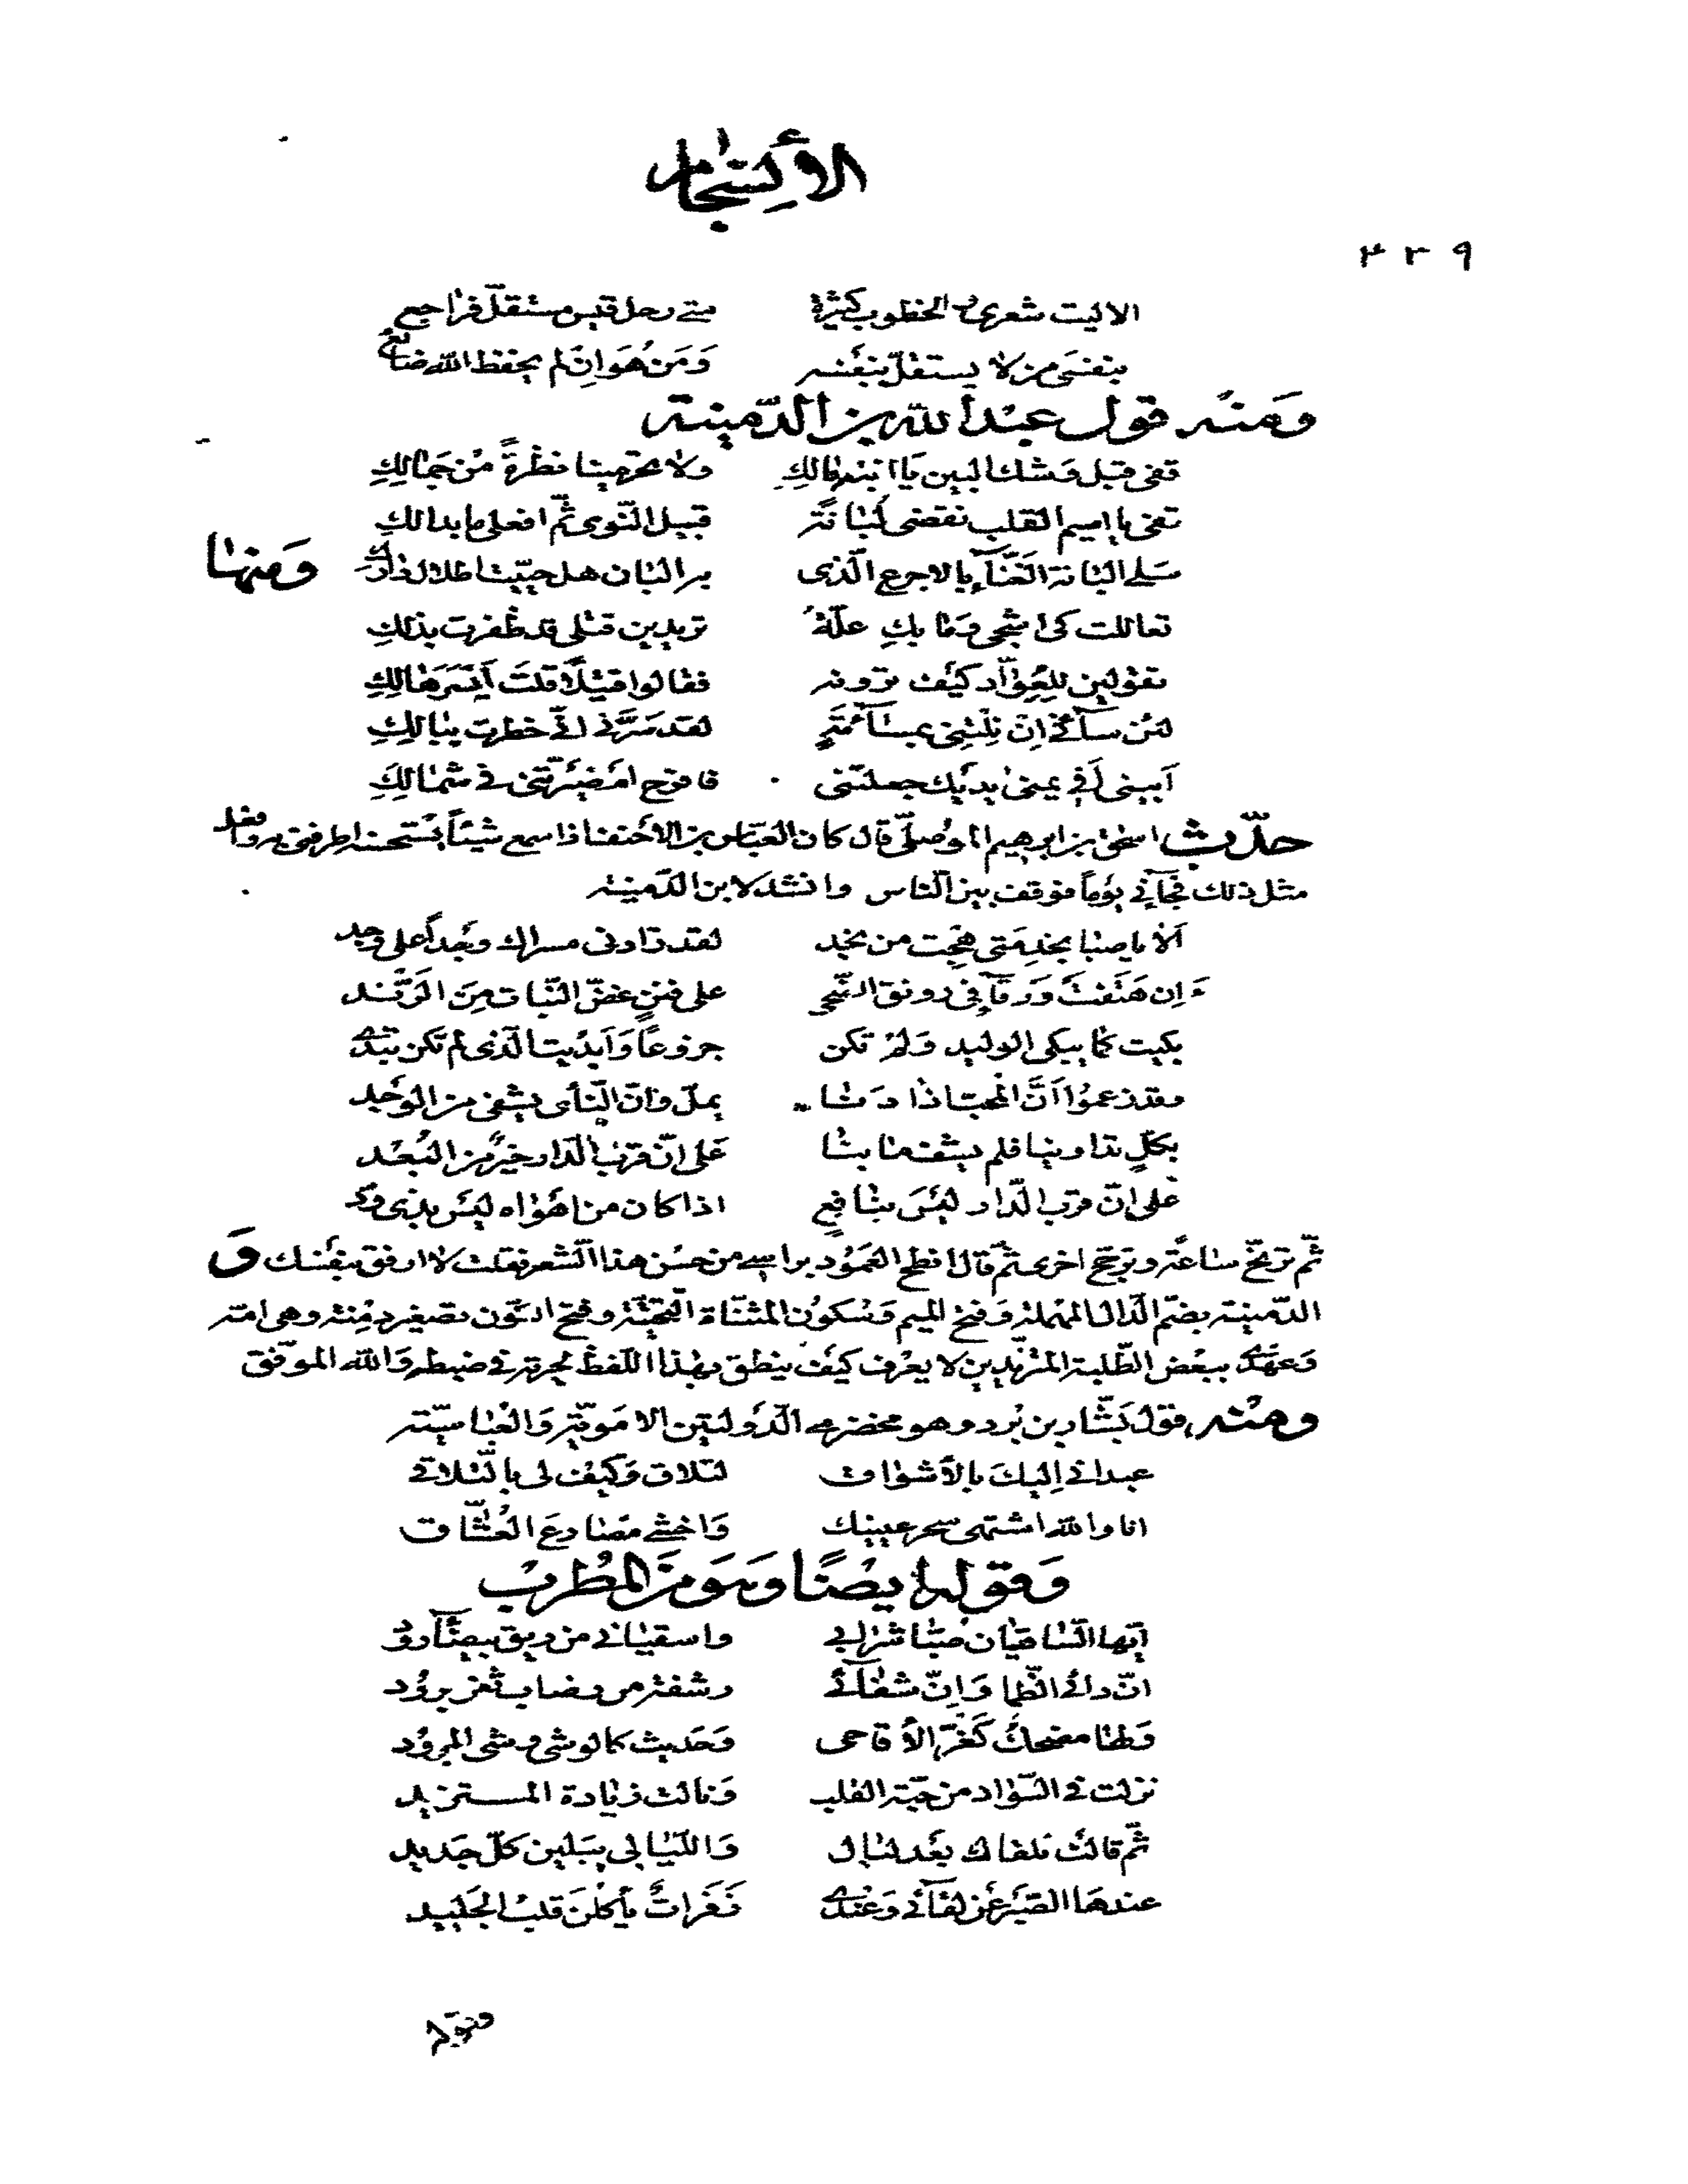 الأنسجام
٤٢٩
الا ليت شعرى والخطوب كثيرة متى رحل قيس مستقل فراجع
بنفسى من لا يستقل بنفسه وَمَن هُوَ ان لم يحفظ الله ضائع
وَمنه قول عبد الله بن الدّمينة
قفى قبل وَشك البين يَا ابنة مالكِ ولا تحرمينا نظرةً من جَمالِكِ
تفى يا اميم القلب نقضى لُبانَة قبيل النّوى ثمّ افعلى ما بدا لكِ
وَمنها
سَلى البانة الغَنّآء بالاجرع الّذى به البان هل حيّيت اطلال دارك
تعاللت كى اشجى وَما بكِ علّةٌ تريدين قتلى قد ظفرت بذلكِ
تقولين للعُوّاد كيْف ترونه فقالوا قتيلًا قلتَ أيسَر هَالِكِ
لئن سآءنى ان نلتنى بمسآءَةٍ لقد سَرَّنى انّى خطرت ببالكِ
أبينى أفى يمنى يديْك جعلتنى فافرح ام صَيّرتنى فى شمالِكِ
حدّث اسحٰق بن ابرهيم الموْصلّى قال كان العبّاس بن الاحْنف اذا سمع شيئاً يُستحسنه اطرفنى به وافعل
مثل ذلك فجآءنى يوْماً فوقف بين النّاس وانشد لابن الدّمينة
ألا يا صبا نجد متى هِجْت من نجد لقد زادنى مسراك وَجْداً على وجد
ءَان هَتفتْ وَرقآء فى رونق الضّحى على فننٍ غضّ النّبات مِنَ الرَنْد
بكيت كما يبكى الوليد وَلمْ تكن جزوعًا وَابدْيت الّذى لم تكن تبدى
وقد زعموْا أنَّ المُحبّ اذا دَنا يملّ وانّ النّأى يشفى من الوجْد
بكلٍّ تداوينا فلم يشف ما بنا عَلى انّ قربُ الدّار خيْرٌ من البُعْد
على انّ قرب الدّار ليْسَ بنافِعٍ اذا كان من تهْواه ليْسَ بذى ودّ
ثمّ ترنّح ساعة وترجّح اخرى ثمّ قال انطح العَمُود براسى من حسْن هذا الشعر فقلت لا ارفق بنفْسك وَ
الدّمينة بضمّ الدّال المهْملة وَفتح الميم وَسُكوْن المثنّاة التّحتيّة وفتح النّون تصغير دِمْنة وهى امّه
وَعهدى ببعْض الطّلبة المتزيّدين لا يعْرف كيْف ينطق بهٰذا اللفظ لجرية فى ضبطه وَالله الموّفق
ومنه قوْل بَشّار بن بُرد وهو مخضرمى الدّوْلتين الامَويّة وَالعبّاسيّة
عبدا نى اِليكَ بالأشْواق لتلاق وَكيْف لى بالتّلاقى
انا والله اشتهى سحر عينيك وَاخشى مصَارعَ العُشّاق
وَقوله ايضًا وَهوَ منَ المُطرب
ايّها السّاقيان صُبّا شرابى واسقيانى من ريق بيضآء رود
انّ دائى الظّما وَانّ شفآئى رشفة من رضاب ثغر برُود
وَلها مضحكٌ كَغُرّ الأقاحى وَحَديث كالوشى وشى البرُود
نزلت فى السّواد من حبّة القلب وَنالت زيادة المستزيد
ثمّ قالتْ نلقاك بعْد ليالٍ وَاللّيالى يبلين كلّ جَديد
عندهَا الصّبْر عَن لقآئى وَعنْدى زَفَراتٌ يأكلْنَ قلبُ الجَليد
وقوله